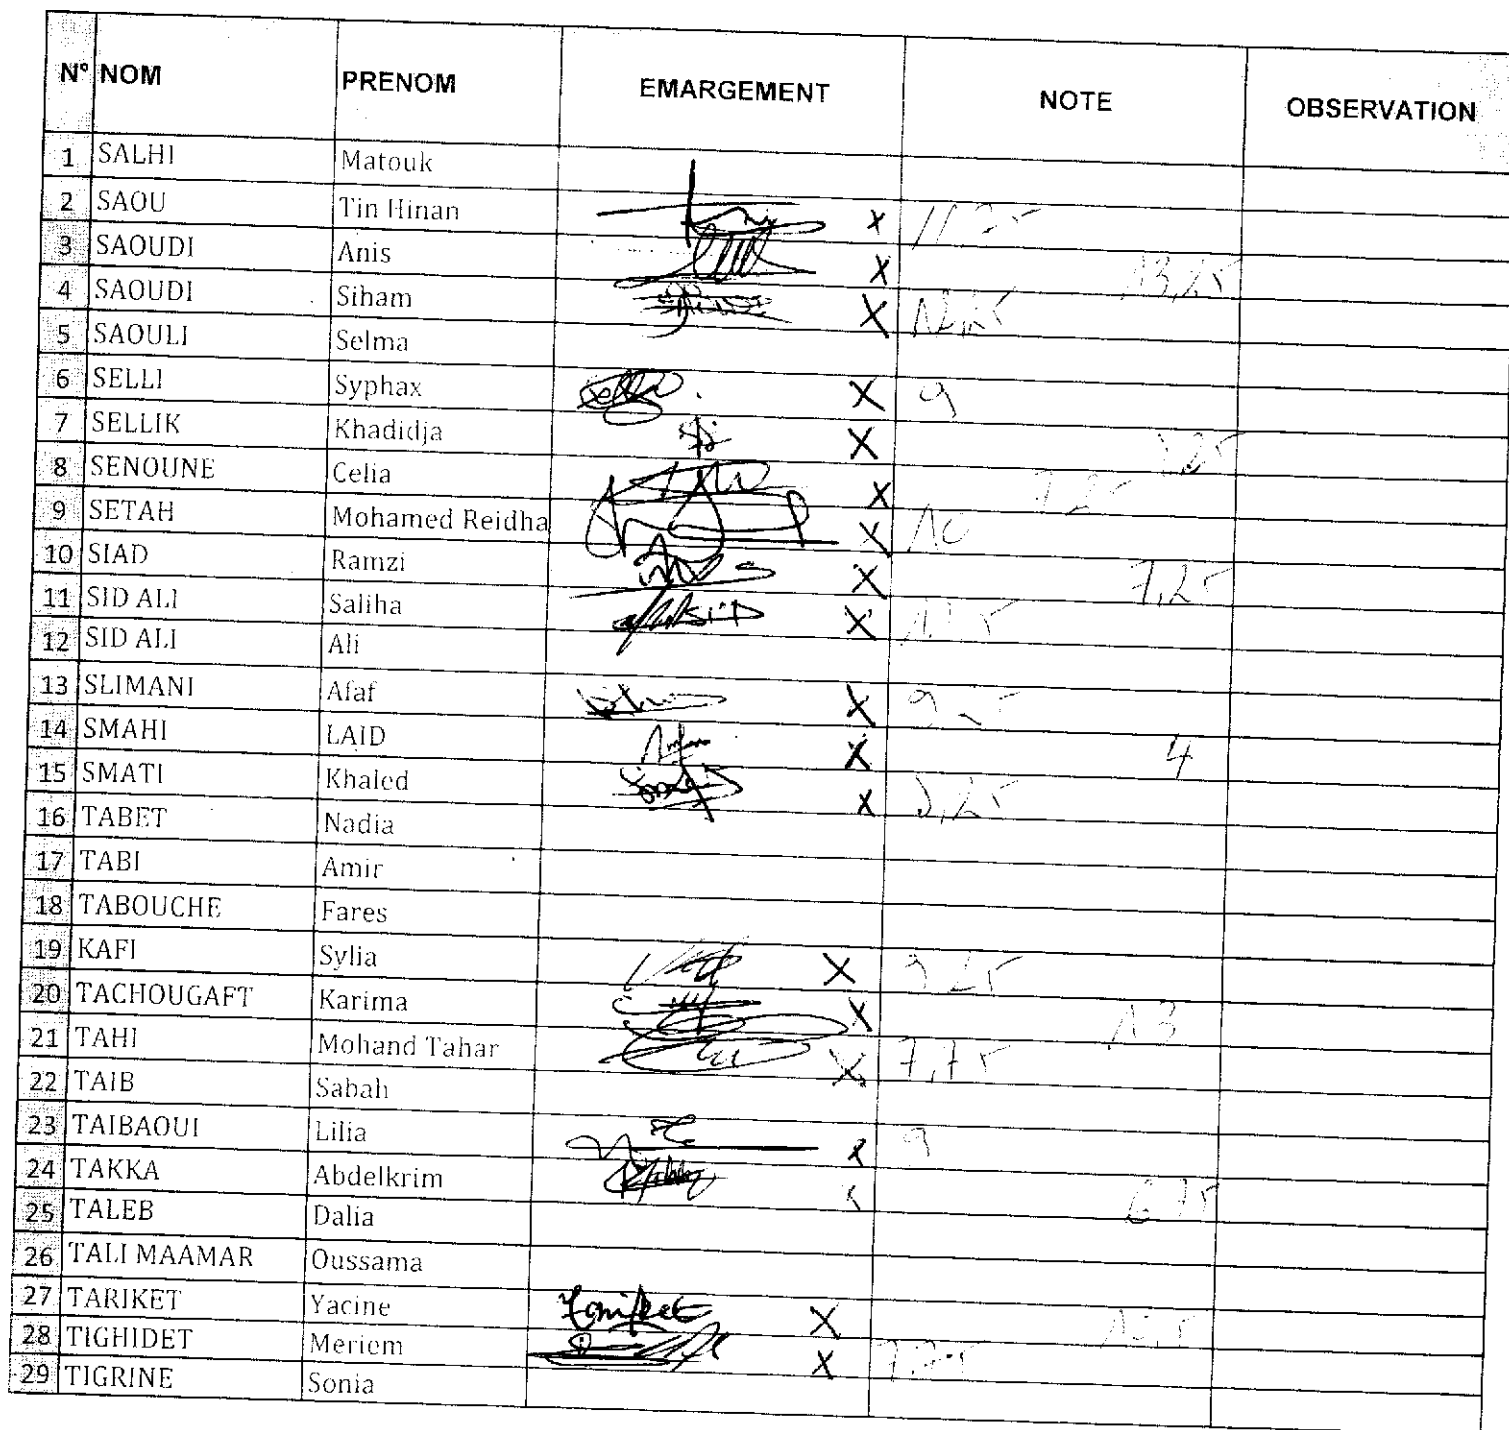 N° NOM PRENOM EMARGEMENT NOTE OBSERVATION
1 SALHI Matouk
2 SAOU Tin Hinan X
3 SAOUDI Anis X 13,25
4 SAOUDI Siham X 12,25
5 SAOULI Selma
6 SELLI Syphax X 9
7 SELLIK Khadidja X
8 SENOUNE Celia X 7,25
9 SETAH Mohamed Reidha X 10
10 SIAD Ramzi X 7,25
11 SID ALI Saliha X
12 SID ALI Ali
13 SLIMANI Afaf X
14 SMAHI LAID X 4
15 SMATI Khaled X
16 TABET Nadia
17 TABI Amir
18 TABOUCHE Fares
19 KAFI Sylia X 9,25
20 TACHOUGAFT Karima X 13
21 TAHI Mohand Tahar X 7,75
22 TAIB Sabah
23 TAIBAOUI Lilia 9
24 TAKKA Abdelkrim 6,75
25 TALEB Dalia
26 TALI MAAMAR Oussama
27 TARIKET Yacine Tariket X
28 TIGHIDET Meriem X
29 TIGRINE Sonia